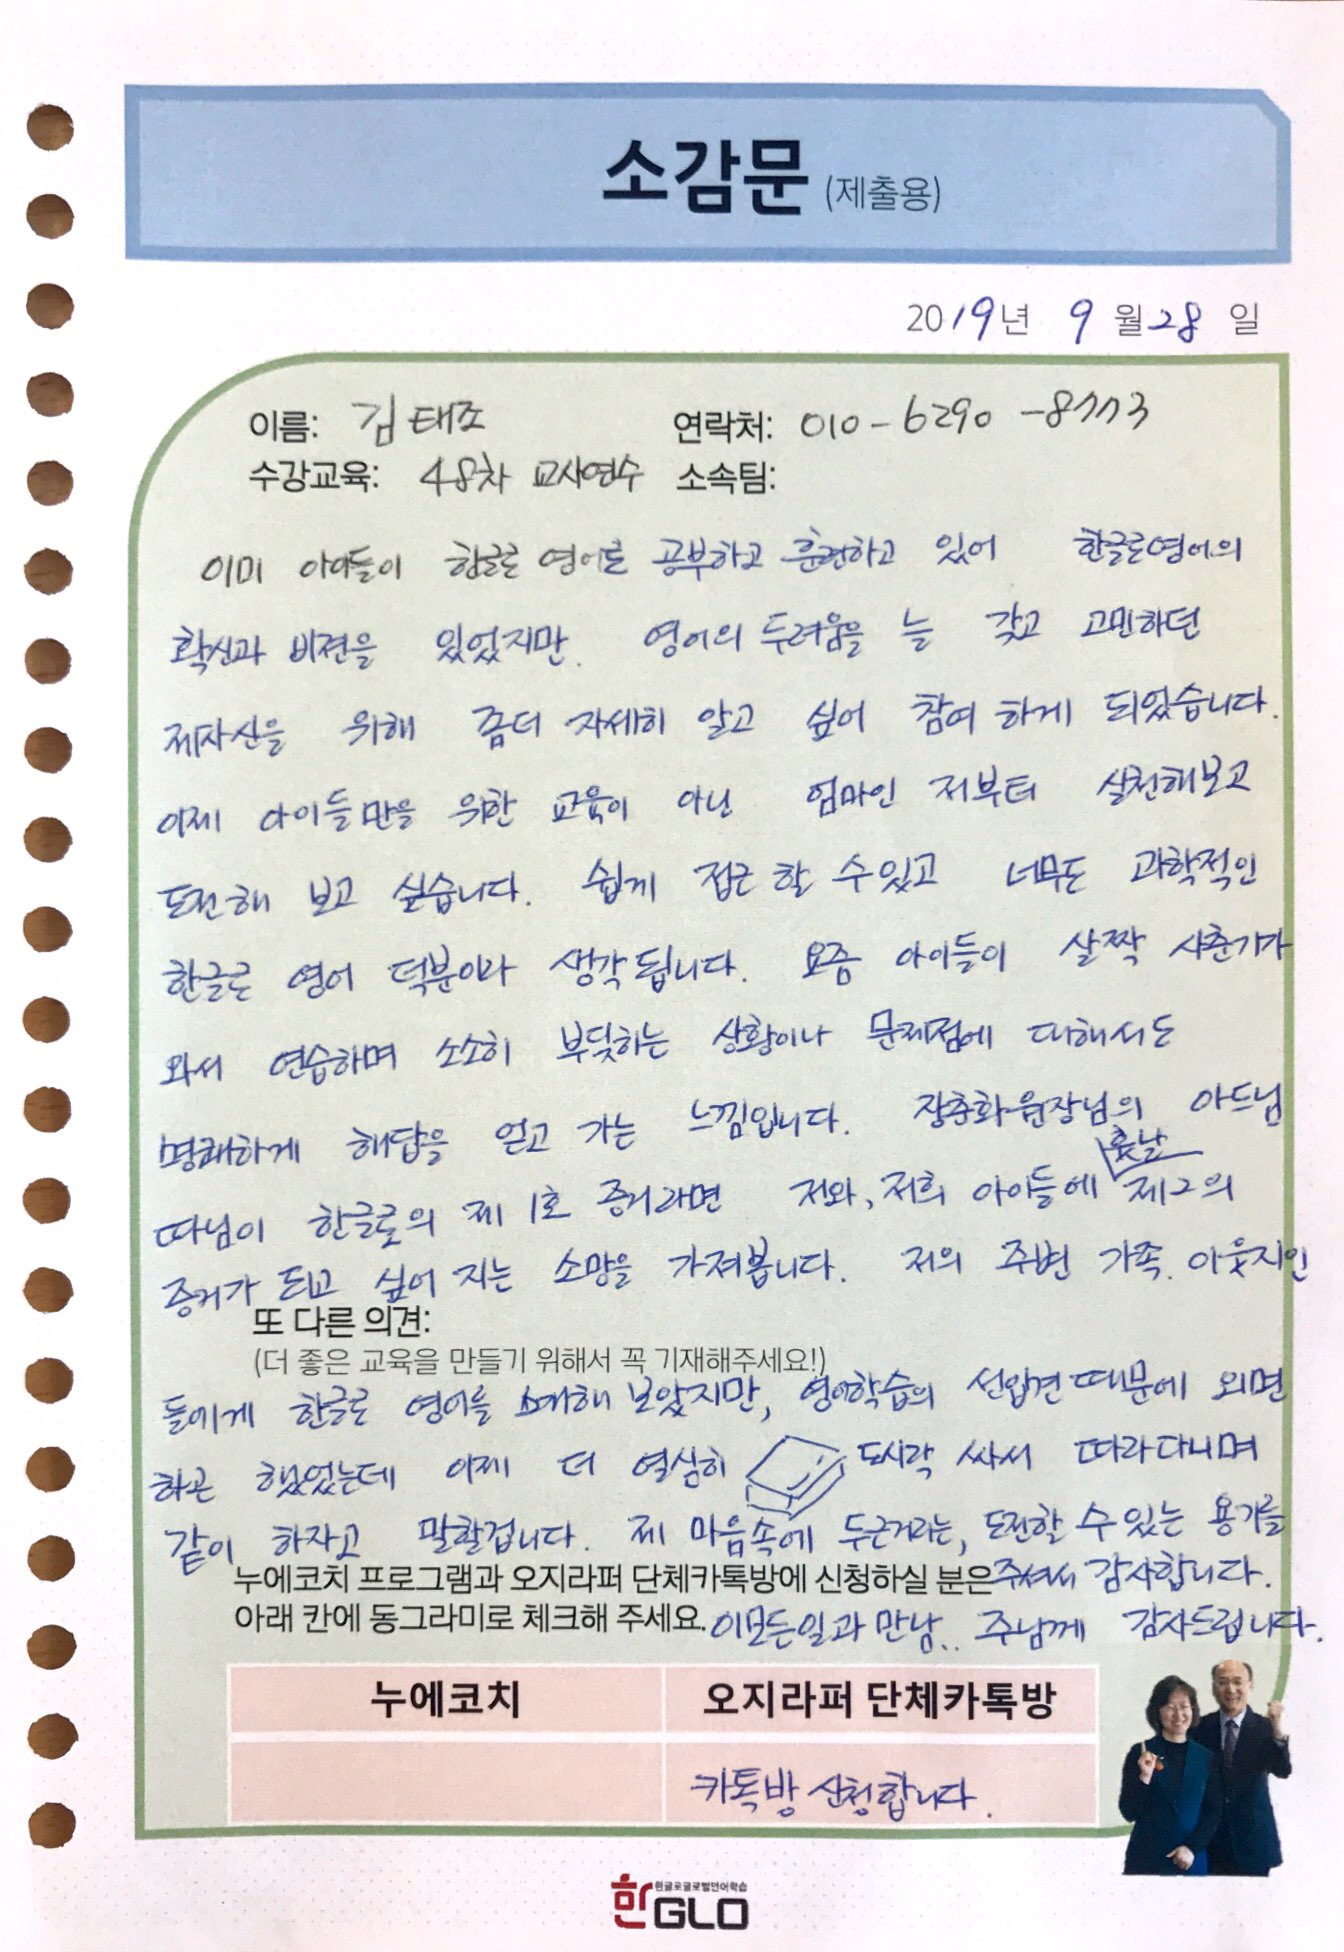 소감문 (제출용)
2019년 9월 28일
이름: 김태조 연락처: 010-6290-8773
수강교육: 48차 교사연수 소속팀:
이미 아이들이 한글로 영어를 공부하고 훈련하고 있어 한글로영어의
확신과 비젼을 있었지만. 영어의 두려움을 늘 갖고 고민하던
제자신을 위해 좀더 자세히 알고 싶어 참여 하게 되었습니다.
이제 아이들만을 위한 교육이 아닌 엄마인 저부터 실천해보고
도전해 보고 싶습니다. 쉽게 접근 할 수 있고 너무도 과학적인
한글로 영어 덕분이라 생각됩니다. 요즘 아이들이 살짝 사춘기가
와서 연습하며 소소히 부딪하는 상황이나 문제점에 대해서도
명쾌하게 해답을 얻고 가는 느낌입니다. 장춘화원장님의 아드님
따님이 한글로의 제 1호 증거라면 저와, 저희 아이들에 훗날 제2의
증거가 되고 싶어 지는 소망을 가져봅니다. 저의 주변 가족. 이웃지인
또 다른 의견:
(더 좋은 교육을 만들기 위해서 꼭 기재해주세요!)
들에게 한글로 영어를 소개해 보았지만, 영어학습의 선입견 때문에 외면
하곤 했었는데 이제 더 열심히 도시락 싸서 따라다니며
같이 하자고 말할겁니다. 제 마음속에 두근거리는, 도전할 수 있는 용기를
누에코치 프로그램과 오지라퍼 단체카톡방에 신청하실 분은 주셔서 감사합니다.
아래 칸에 동그라미로 체크해 주세요. 이모든일과 만남.. 주님께 감사드립니다.
누에코치 오지라퍼 단체카톡방
카톡방 신청합니다.
한글로글로벌언어학습
한GLO